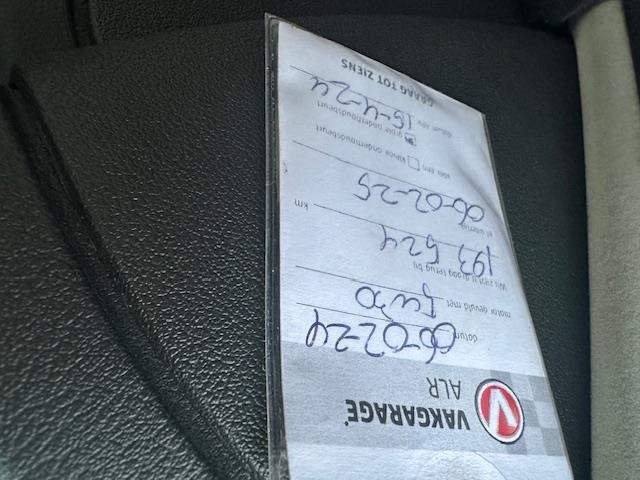 VAKGARAGE
ALR
datum 06-02-24
motor gevuld met 5w30
Wij zien u graag terug bij
193 524 km
of uiterlijk 06-02-25
voor een kleine onderhoudsbeurt
grote onderhoudsbeurt
datum apk 15-4-24
GRAAG TOT ZIENS